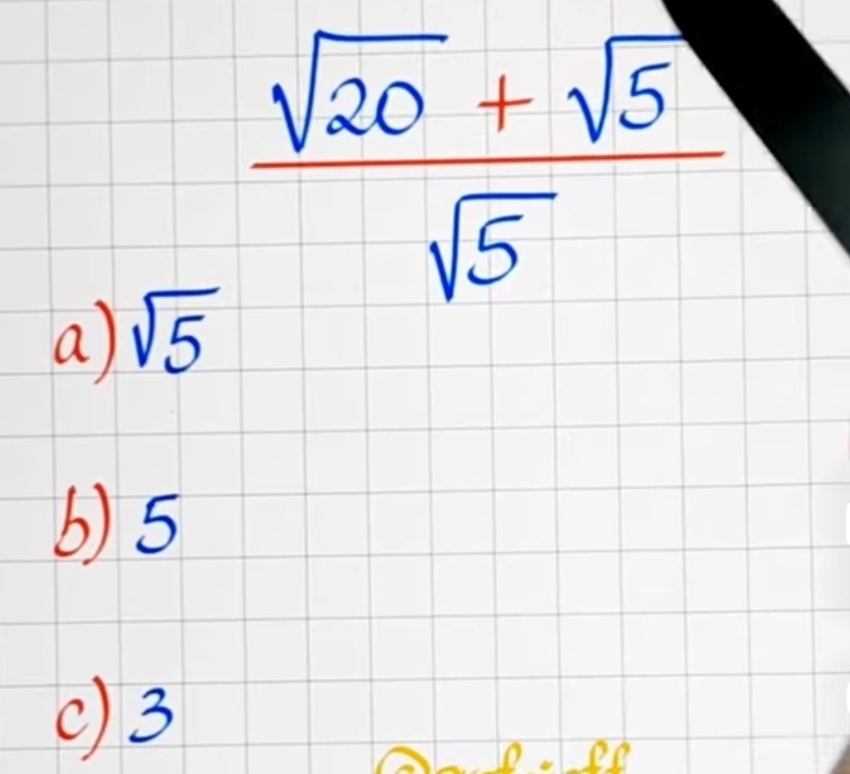 √20 + √5
√5
a) √5
b) 5
c) 3